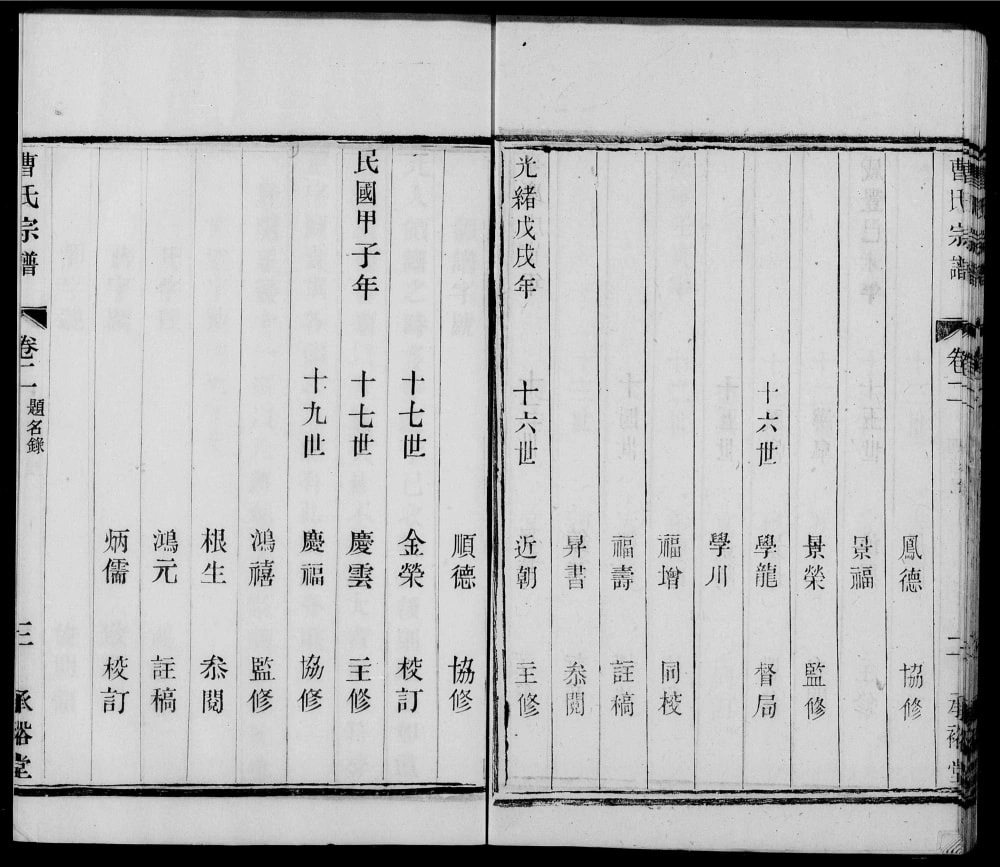 曹氏宗譜 卷二 二 承裕堂
鳳德 協修
景福
景榮 監修
十六世 學龍 督局
學川
福增 同校
福壽 註稿
昇書 叅閱
光緒戊戌年 十六世 近朝 主修
順德 協修
十七世 金榮 校訂
民國甲子年 十七世 慶雲 主修
十九世 慶福 協修
鴻禧 監修
根生 叅閱
鴻元 註稿
炳儒 校訂
曹氏宗譜 卷二 題名錄 三 承裕堂